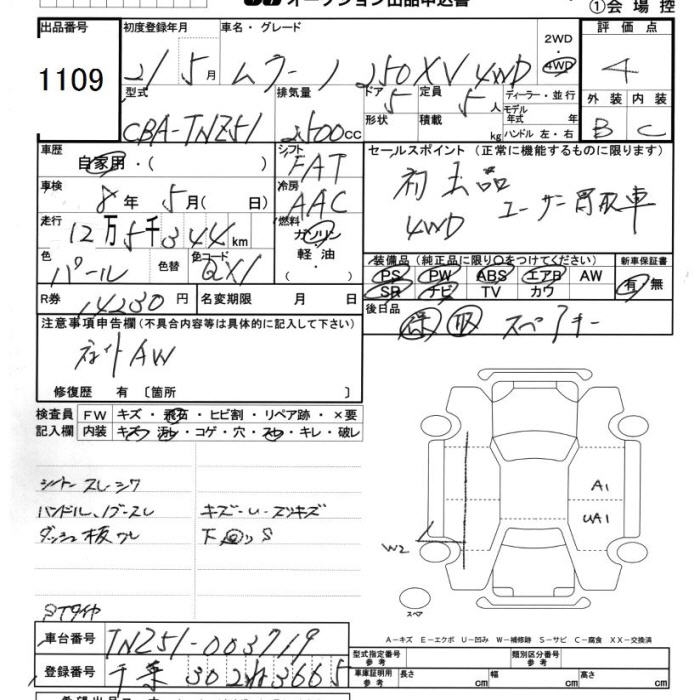 オークション出品申込書
①会場控
出品番号 初度登録年月 車名・グレード 2WD・4WD 評価点
1109 21 5月 ムラーノ 250XV 4WD 4
型式 排気量 ドア 5 定員 5人 ディーラー・並行 外装 内装
CBA-TNZ51 2500cc 形状 積載 kg モデル年式 年 ハンドル 左・右 B C
車歴 シフト セールスポイント(正常に機能するものに限ります)
自家用・( ) FAT
車検 冷房 初出品 ユーザー買取車
8年 5月( 日) AAC 4WD
走行 燃料
12万5千344km ガソリン・軽油・
色 色替 色コード 装備品(純正品に限り○をつけてください) 新車保証書
パール QX1 PS PW ABS エアB AW 有・無
SR ナビ TV カワ
R券 14230円 名変期限 月 日 後日品
スペアキー
注意事項申告欄(不具合内容等は具体的に記入して下さい)
AW
修復歴 有〔箇所 〕
検査員 FW キズ・飛石・ヒビ割・リペア跡・×要
記入欄 内装 キズ・汚れ・コゲ・穴・スレ・キレ・破レ
シートスレ・シワ
キズ・U・スリキズ
ダッシュ板ワレ 下回りS
A1
UA1
W2
スペア
STタイヤ
A-キズ E-エクボ U-凹み W-補修跡 S-サビ C-腐食 XX-交換済
車台番号 TNZ51-003719 型式指定番号 参考 類別区分番号 参考
登録番号 千葉 302 3665 車庫証明用 参考 長さ cm 幅 cm 高さ cm